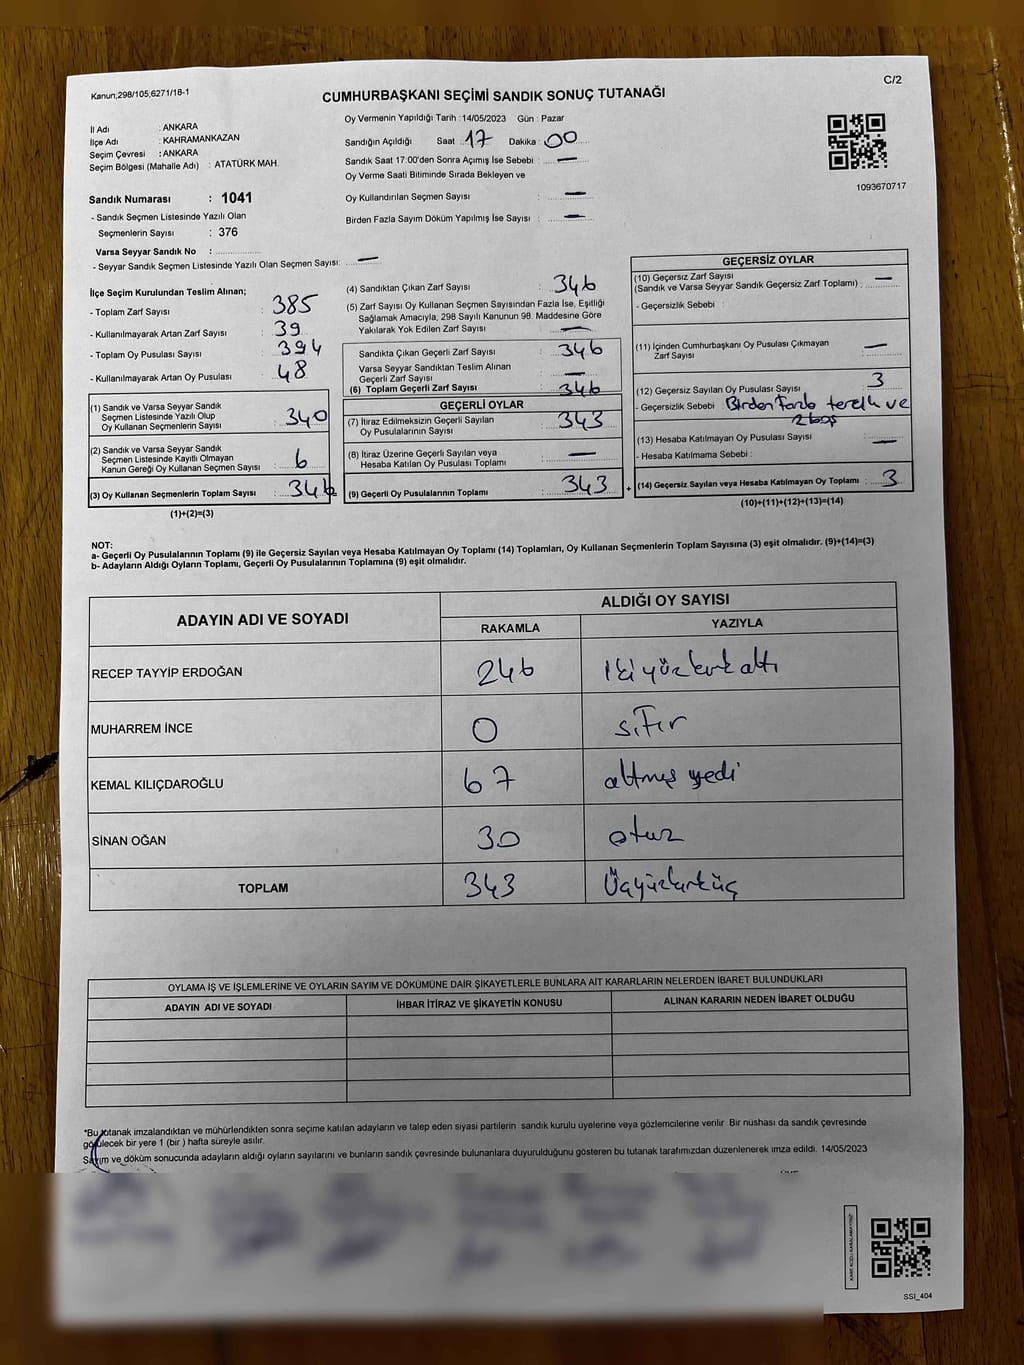 Kanun;298/105;6271/18-1
C/2
CUMHURBAŞKANI SEÇİMİ SANDIK SONUÇ TUTANAĞI
İl Adı : ANKARA
İlçe Adı : KAHRAMANKAZAN
Seçim Çevresi : ANKARA
Seçim Bölgesi (Mahalle Adı) : ATATÜRK MAH.
Sandık Numarası : 1041
- Sandık Seçmen Listesinde Yazılı Olan
Seçmenlerin Sayısı : 376
Varsa Seyyar Sandık No :
- Seyyar Sandık Seçmen Listesinde Yazılı Olan Seçmen Sayısı: —
Oy Vermenin Yapıldığı Tarih : 14/05/2023 Gün : Pazar
Sandığın Açıldığı Saat : 17 Dakika : 00
Sandık Saat 17:00'den Sonra Açımış İse Sebebi : —
Oy Verme Saati Bitiminde Sırada Bekleyen ve
Oy Kullandırılan Seçmen Sayısı : —
Birden Fazla Sayım Döküm Yapılmış İse Sayısı : —
1093670717
İlçe Seçim Kurulundan Teslim Alınan;
- Toplam Zarf Sayısı : 385
- Kullanılmayarak Artan Zarf Sayısı : 39
- Toplam Oy Pusulası Sayısı : 394
- Kullanılmayarak Artan Oy Pusulası : 48
(1) Sandık ve Varsa Seyyar Sandık
Seçmen Listesinde Yazılı Olup
Oy Kullanan Seçmenlerin Sayısı : 340
(2) Sandık ve Varsa Seyyar Sandık
Seçmen Listesinde Kayıtlı Olmayan
Kanun Gereği Oy Kullanan Seçmen Sayısı : 6
(3) Oy Kullanan Seçmenlerin Toplam Sayısı : 346
(1)+(2)=(3)
(4) Sandıktan Çıkan Zarf Sayısı : 346
(5) Zarf Sayısı Oy Kullanan Seçmen Sayısından Fazla İse, Eşitliği
Sağlamak Amacıyla, 298 Sayılı Kanunun 98. Maddesine Göre
Yakılarak Yok Edilen Zarf Sayısı : —
Sandıkta Çıkan Geçerli Zarf Sayısı : 346
Varsa Seyyar Sandıktan Teslim Alınan
Geçerli Zarf Sayısı : —
(6) Toplam Geçerli Zarf Sayısı : 346
GEÇERLİ OYLAR
(7) İtiraz Edilmeksizin Geçerli Sayılan
Oy Pusulalarının Sayısı : 343
(8) İtiraz Üzerine Geçerli Sayılan veya
Hesaba Katılan Oy Pusulası Toplamı : —
(9) Geçerli Oy Pusulalarının Toplamı : 343
+
GEÇERSİZ OYLAR
(10) Geçersiz Zarf Sayısı
(Sandık ve Varsa Seyyar Sandık Geçersiz Zarf Toplamı) : —
- Geçersizlik Sebebi :
(11) İçinden Cumhurbaşkanı Oy Pusulası Çıkmayan
Zarf Sayısı : —
(12) Geçersiz Sayılan Oy Pusulası Sayısı : 3
- Geçersizlik Sebebi : Birden Fazla tercih ve
2 boş
(13) Hesaba Katılmayan Oy Pusulası Sayısı : —
- Hesaba Katılmama Sebebi :
(14) Geçersiz Sayılan veya Hesaba Katılmayan Oy Toplamı : 3
(10)+(11)+(12)+(13)=(14)
NOT:
a- Geçerli Oy Pusulalarının Toplamı (9) ile Geçersiz Sayılan veya Hesaba Katılmayan Oy Toplamı (14) Toplamları, Oy Kullanan Seçmenlerin Toplam Sayısına (3) eşit olmalıdır. (9)+(14)=(3)
b- Adayların Aldığı Oyların Toplamı, Geçerli Oy Pusulalarının Toplamına (9) eşit olmalıdır.
ADAYIN ADI VE SOYADI ALDIĞI OY SAYISI
RAKAMLA YAZIYLA
RECEP TAYYİP ERDOĞAN 246 ikiyüzkırkaltı
MUHARREM İNCE 0 sıfır
KEMAL KILIÇDAROĞLU 67 altmış yedi
SİNAN OĞAN 30 otuz
TOPLAM 343 Üçyüzkırküç
OYLAMA İŞ VE İŞLEMLERİNE VE OYLARIN SAYIM VE DÖKÜMÜNE DAİR ŞİKAYETLERLE BUNLARA AİT KARARLARIN NELERDEN İBARET BULUNDUKLARI
ADAYIN ADI VE SOYADI İHBAR İTİRAZ VE ŞİKAYETİN KONUSU ALINAN KARARIN NEDEN İBARET OLDUĞU
*Bu tutanak imzalandıktan ve mühürlendikten sonra seçime katılan adayların ve talep eden siyasi partilerin sandık kurulu üyelerine veya gözlemcilerine verilir. Bir nüshası da sandık çevresinde
görülecek bir yere 1 (bir ) hafta süreyle asılır.
Sayım ve döküm sonucunda adayların aldığı oyların sayılarını ve bunların sandık çevresinde bulunanlara duyurulduğunu gösteren bu tutanak tarafımızdan düzenlenerek imza edildi. 14/05/2023
SSI_404